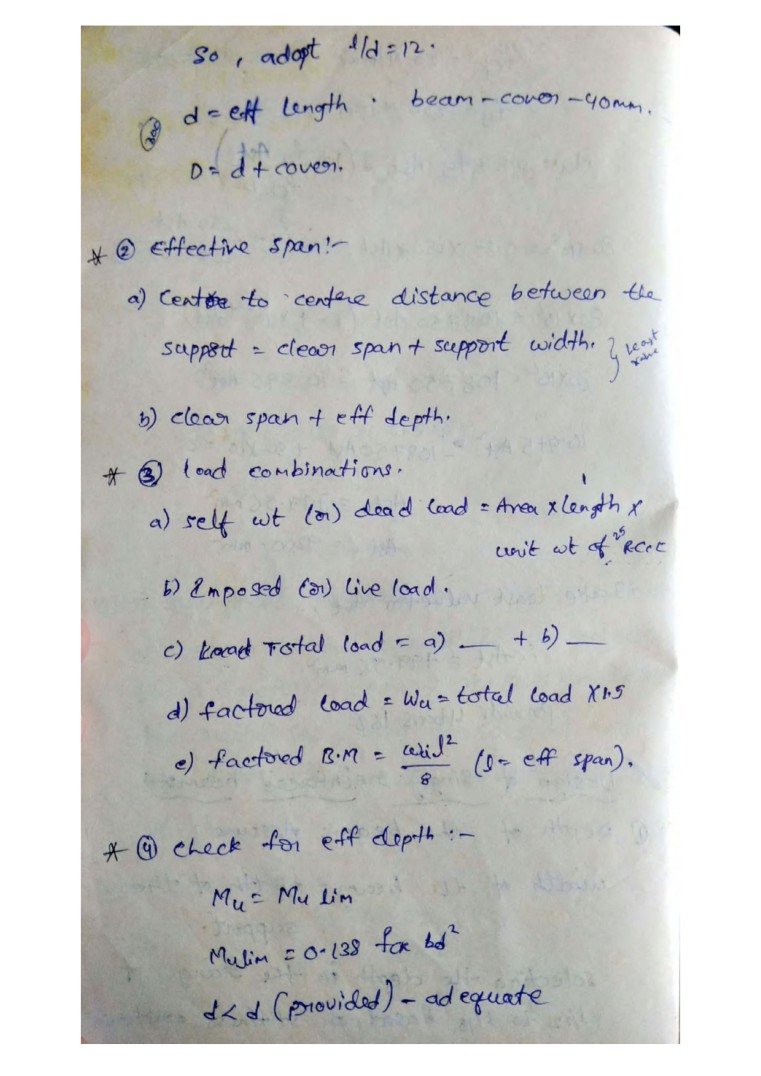 So, adopt l/d = 12.
d = eff length. beam - cover - 40mm.
D = d + cover.
* ② Effective span:-
a) Center to centere distance between the
support = clear span + support width. } least value
b) clear span + eff depth.
* ③ load combinations.
a) self wt (or) dead load = Area x length x
unit wt of 25 R.C.C
b) Imposed (or) live load.
c) Total load = a) __ + b) __
d) factored load = Wu = total load x 1.5
e) factored B.M = wul²/8 (l = eff span).
* ④ check for eff depth :-
Mu = Mu lim
Mulim = 0.138 fck bd²
d < d (provided) - adequate